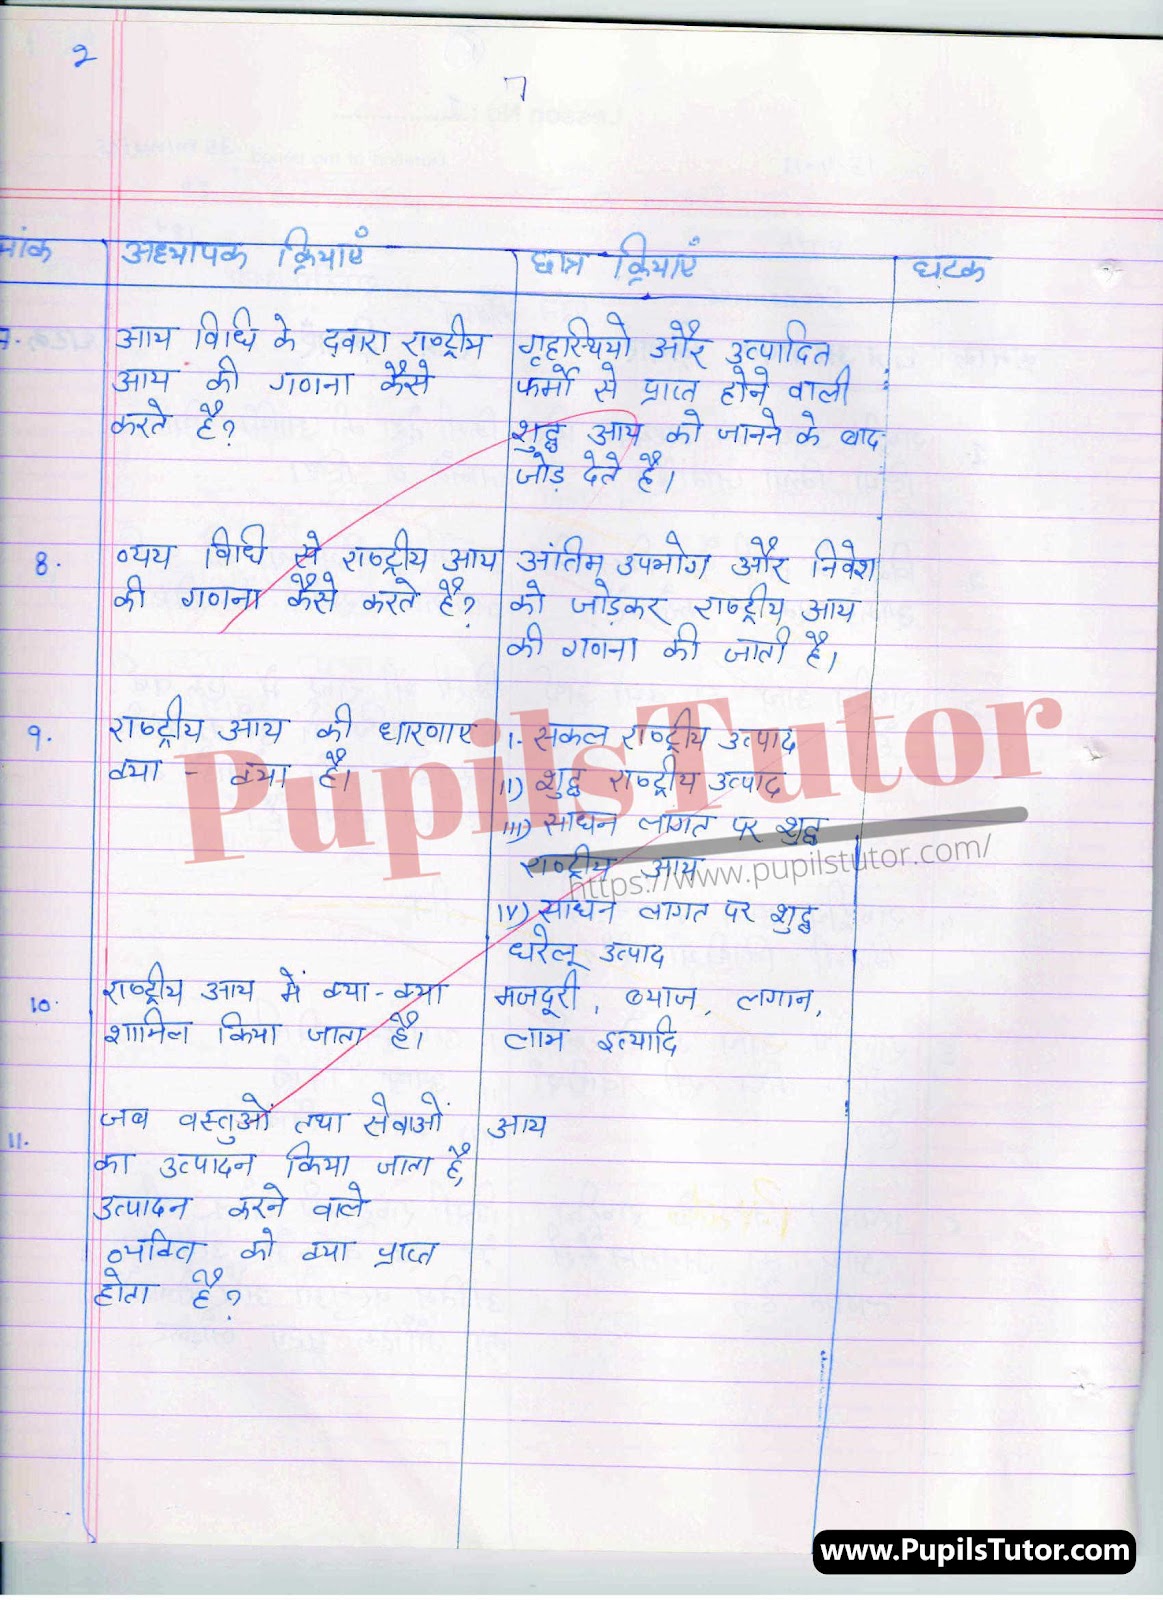 2
7
मांक अध्यापक क्रियाएं छात्र क्रियाएं घटक
7. आय विधि के द्वारा राष्ट्रीय
आय की गणना कैसे
करते है?
गृहस्थियो और उत्पादित
फर्मो से प्राप्त होने वाली
शुद्ध आय को जानने के बाद
जोड़ देते है।
8. व्यय विधि से राष्ट्रीय आय
की गणना कैसे करते है?
अंतिम उपभोग और निवेश
को जोड़कर राष्ट्रीय आय
की गणना की जाती है।
9. राष्ट्रीय आय की धारणाए
क्या - क्या है।
I. सकल राष्ट्रीय उत्पाद
II) शुद्ध राष्ट्रीय उत्पाद
III) साधन लागत पर शुद्ध
राष्ट्रीय आय
IV) साधन लागत पर शुद्ध
घरेलू उत्पाद
10. राष्ट्रीय आय में क्या-क्या
शामिल किया जाता है।
मजदूरी, ब्याज, लगान,
लाभ इत्यादि
11. जब वस्तुओं तथा सेवाओं
का उत्पादन किया जाता है,
उत्पादन करने वाले
व्यक्ति को क्या प्राप्त
होता है?
आय
PupilsTutor
https://www.pupilstutor.com/
www.PupilsTutor.com